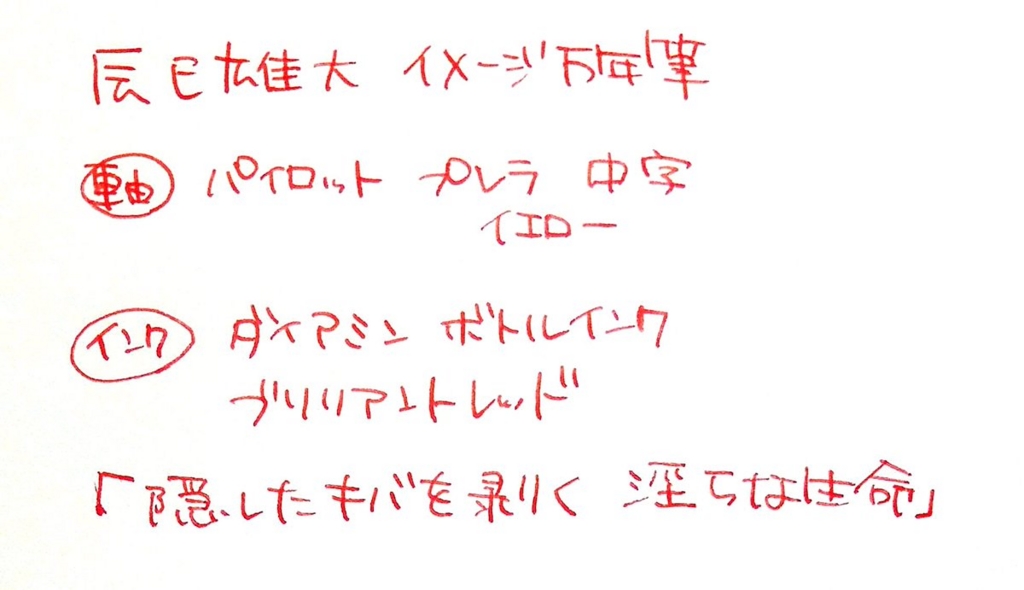 辰巳雄大 イメージ万年筆
軸 パイロット プレラ 中字
イエロー
インク ダイアミン ボトルインク
ブリリアントレッド
「隠したキバを剥く 淫らな生命」